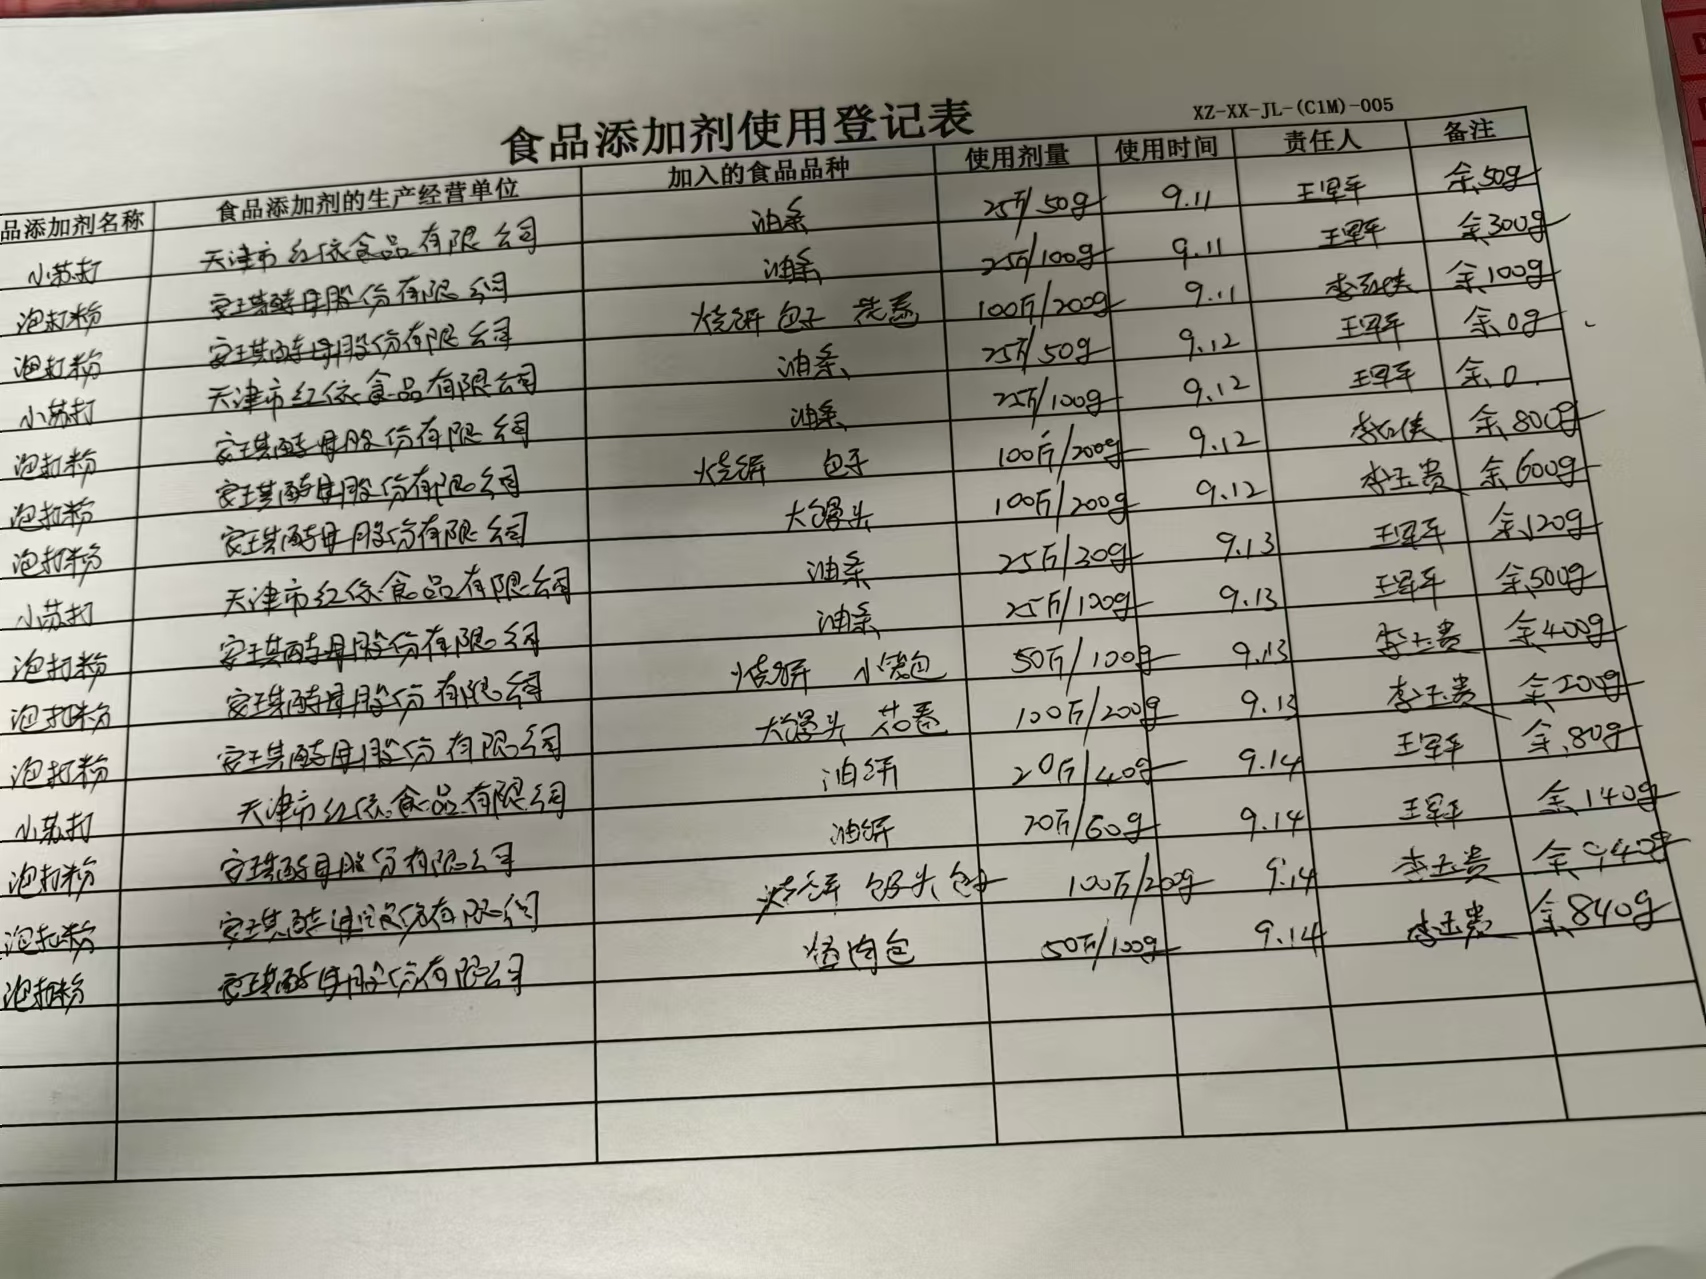 食品添加剂使用登记表
XZ-XX-JL-(C1M)-005
品添加剂名称 食品添加剂的生产经营单位 加入的食品品种 使用剂量 使用时间 责任人 备注
小苏打 天津市红依食品有限公司 油条 25斤/50g 9.11 王军平 余50g
泡打粉 安琪酵母股份有限公司 油条 25斤/100g 9.11 王军平 余300g
泡打粉 安琪酵母股份有限公司 烧饼 包子 9.11 100斤/200g 余100g
小苏打 天津市红依食品有限公司 油条 25斤/50g 9.12 王军平 余0g
泡打粉 安琪酵母股份有限公司 油条 25斤/100g 9.12 王军平 余0
泡打粉 安琪酵母股份有限公司 烧饼 包子 100斤/200g 9.12 余800g
泡打粉 安琪酵母股份有限公司 大馒头 100斤/200g 9.12 李玉贵 余600g
小苏打 天津市红依食品有限公司 油条 25斤/30g 9.13 王军平 余120g
泡打粉 安琪酵母股份有限公司 油条 25斤/100g 9.13 王军平 余500g
泡打粉 安琪酵母股份有限公司 烧饼 小笼包 50斤/100g 9.13 李玉贵 余400g
泡打粉 安琪酵母股份有限公司 大馒头 花卷 100斤/200g 9.13 李玉贵 余200g
小苏打 天津市红依食品有限公司 油饼 20斤/40g 9.14 王军平 余80g
泡打粉 安琪酵母股份有限公司 油饼 20斤/60g 9.14 王军平 余140g
泡打粉 安琪酵母股份有限公司 烧饼 馒头 包子 100斤/200g 9.14 李玉贵 余940g
泡打粉 安琪酵母股份有限公司 酱肉包 50斤/100g 9.14 李玉贵 余840g